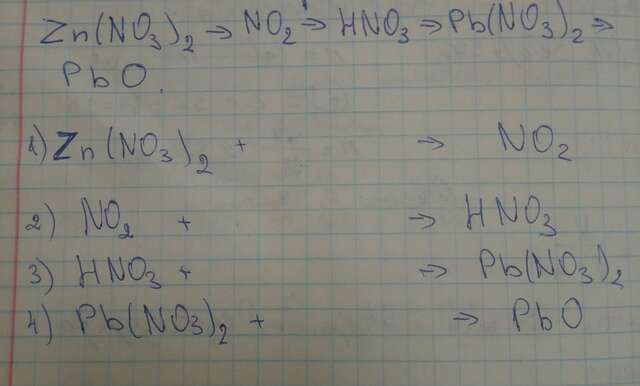 Zn(NO3)2 → NO2 → HNO3 → Pb(NO3)2 →
PbO.
1) Zn(NO3)2 + → NO2
2) NO2 + → HNO3
3) HNO3 + → Pb(NO3)2
4) Pb(NO3)2 + → PbO